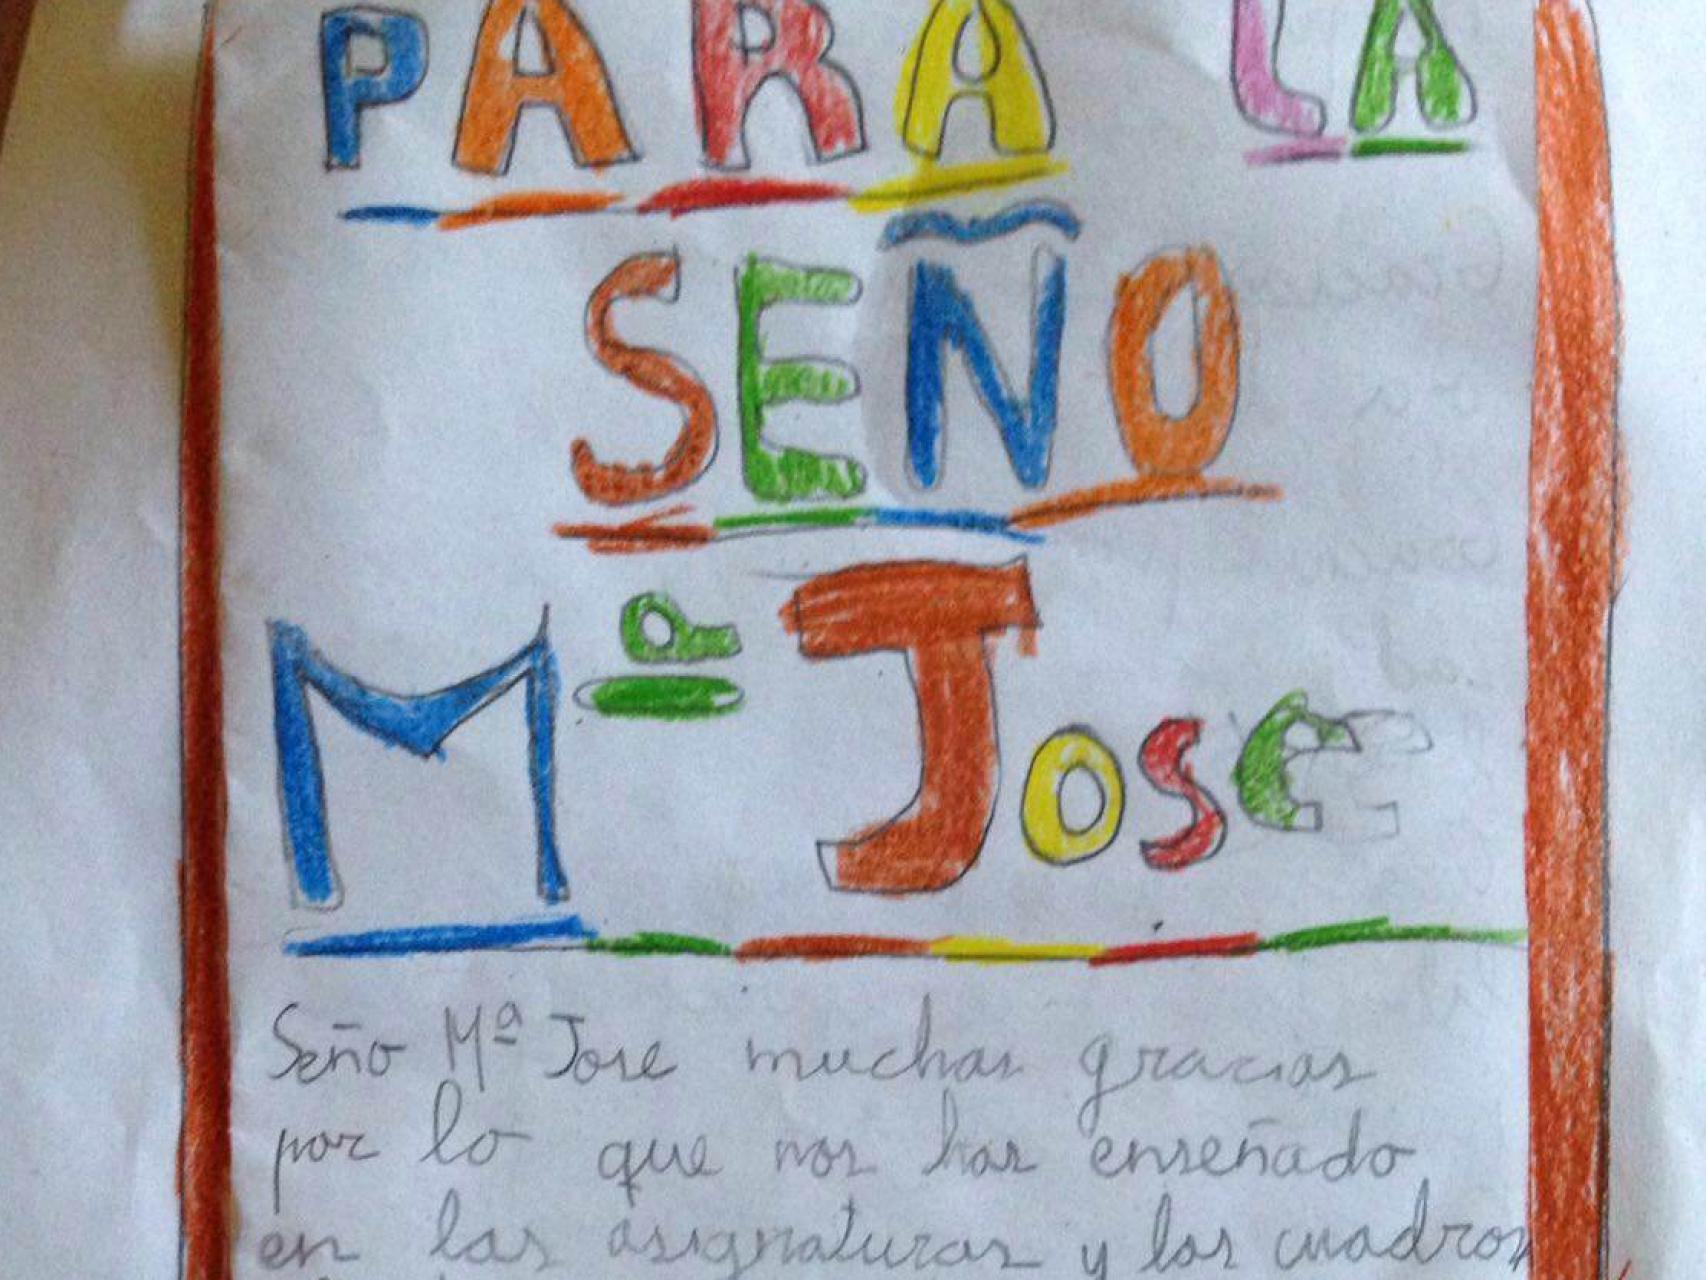 PARA LA
SEÑO
Mª JOSE
Seño Mª Jose muchas gracias
por lo que nos has enseñado
en las asignaturas y los cuadros